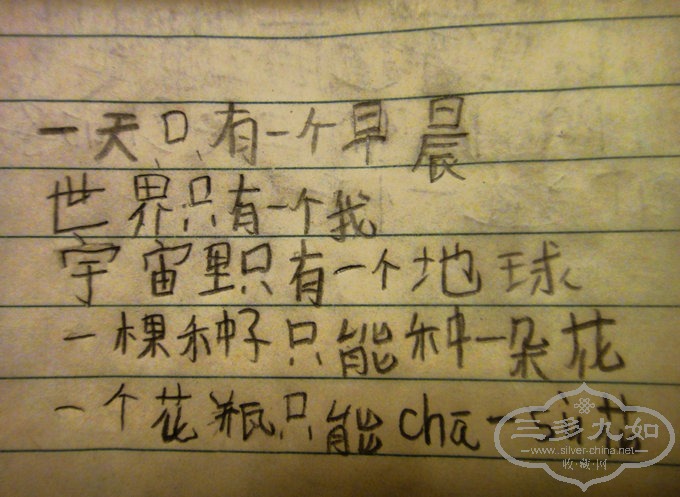 一天只有一个早晨
世界只有一个我
宇宙里只有一个地球
一棵种子只能种一朵花
一个花瓶只能chā一 花
三多九如
www.silver-china.net
收·藏·网